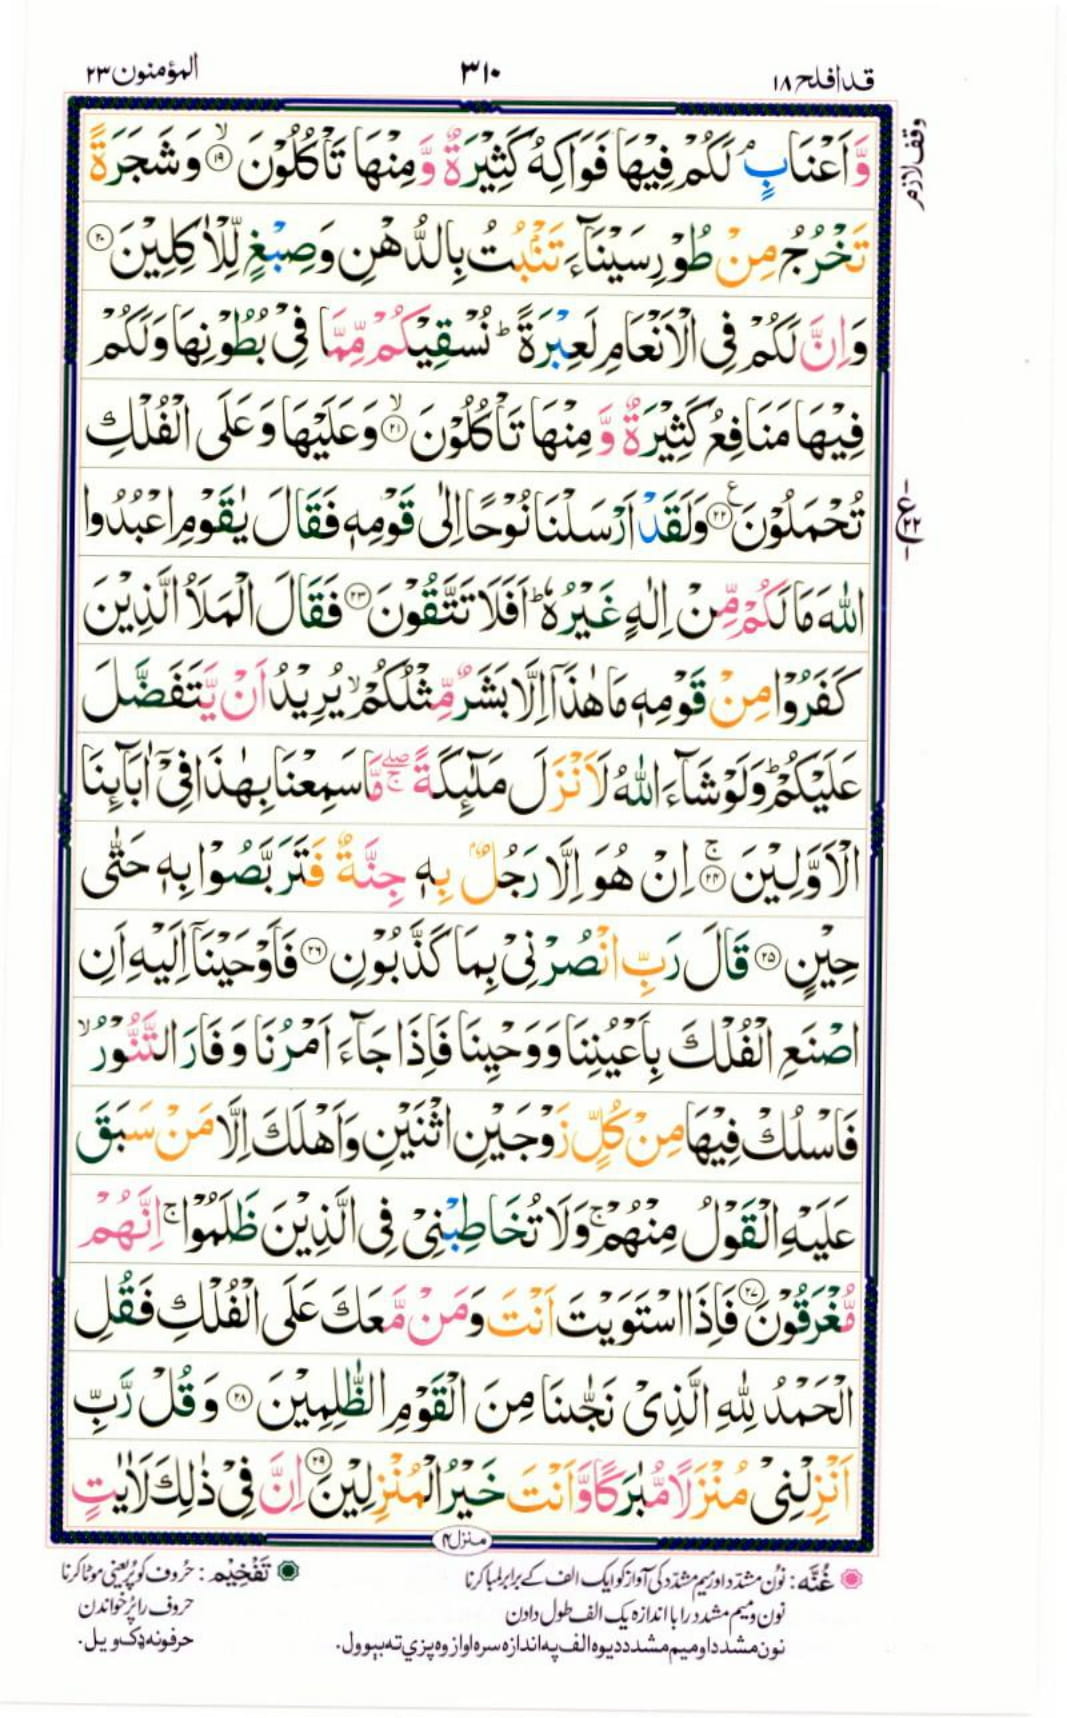 قد افلح ۱۸
۳۱۰
المؤمنون ۲۳
وقف لازم
وَّ اَعْنَابٍ ۘ لَكُمْ فِیْهَا فَوَاكِهُ كَثِیْرَةٌ وَّ مِنْهَا تَاْكُلُوْنَ ۙ﴿۱۹﴾ وَ شَجَرَةً
تَخْرُجُ مِنْ طُوْرِ سَیْنَآءَ تَنْۢبُتُ بِالدُّهْنِ وَ صِبْغٍ لِّلْاٰكِلِیْنَ ﴿۲۰﴾
وَ اِنَّ لَكُمْ فِی الْاَنْعَامِ لَعِبْرَةً ؕ نُسْقِیْكُمْ مِّمَّا فِیْ بُطُوْنِهَا وَ لَكُمْ
فِیْهَا مَنَافِعُ كَثِیْرَةٌ وَّ مِنْهَا تَاْكُلُوْنَ ۙ﴿۲۱﴾ وَ عَلَیْهَا وَ عَلَی الْفُلْكِ
تُحْمَلُوْنَ ﴿۲۲﴾ ع وَ لَقَدْ اَرْسَلْنَا نُوْحًا اِلٰی قَوْمِهٖ فَقَالَ یٰقَوْمِ اعْبُدُوا
ع ۲۲
اللّٰهَ مَا لَكُمْ مِّنْ اِلٰهٍ غَیْرُهٗ ؕ اَفَلَا تَتَّقُوْنَ ﴿۲۳﴾ فَقَالَ الْمَلَؤُا الَّذِیْنَ
كَفَرُوْا مِنْ قَوْمِهٖ مَا هٰذَاۤ اِلَّا بَشَرٌ مِّثْلُكُمْ ۙ یُرِیْدُ اَنْ یَّتَفَضَّلَ
عَلَیْكُمْ ؕ وَ لَوْ شَآءَ اللّٰهُ لَاَنْزَلَ مَلٰٓئِكَةً ۚۖ مَّا سَمِعْنَا بِهٰذَا فِیْۤ اٰبَآئِنَا
الْاَوَّلِیْنَ ۚ﴿۲۴﴾ اِنْ هُوَ اِلَّا رَجُلٌۢ بِهٖ جِنَّةٌ فَتَرَبَّصُوْا بِهٖ حَتّٰی
حِیْنٍ ﴿۲۵﴾ قَالَ رَبِّ انْصُرْنِیْ بِمَا كَذَّبُوْنِ ﴿۲۶﴾ فَاَوْحَیْنَاۤ اِلَیْهِ اَنِ
اصْنَعِ الْفُلْكَ بِاَعْیُنِنَا وَ وَحْیِنَا فَاِذَا جَآءَ اَمْرُنَا وَ فَارَ التَّنُّوْرُ ۙ
فَاسْلُكْ فِیْهَا مِنْ كُلٍّ زَوْجَیْنِ اثْنَیْنِ وَ اَهْلَكَ اِلَّا مَنْ سَبَقَ
عَلَیْهِ الْقَوْلُ مِنْهُمْ ۚ وَ لَا تُخَاطِبْنِیْ فِی الَّذِیْنَ ظَلَمُوْا ۚ اِنَّهُمْ
مُّغْرَقُوْنَ ﴿۲۷﴾ فَاِذَا اسْتَوَیْتَ اَنْتَ وَ مَنْ مَّعَكَ عَلَی الْفُلْكِ فَقُلِ
الْحَمْدُ لِلّٰهِ الَّذِیْ نَجّٰىنَا مِنَ الْقَوْمِ الظّٰلِمِیْنَ ﴿۲۸﴾ وَ قُلْ رَّبِّ
اَنْزِلْنِیْ مُنْزَلًا مُّبٰرَكًا وَّ اَنْتَ خَیْرُ الْمُنْزِلِیْنَ ﴿۲۹﴾ اِنَّ فِیْ ذٰلِكَ لَاٰیٰتٍ
منزل ۴
غُنَّه: نون مشدد اور میم مشدد کی آواز کو ایک الف کے برابر لمبا کرنا
نون و میم مشدد را با اندازه یک الف طول دادن
نون مشدد او میم مشدد دیوه الف په اندازه سره اواز وه پزې ته بیوول.
تَفْخِیْم: حروف کو پُر یعنی موٹا کرنا
حروف را پُر خواندن
حرفونه ډک ویل.